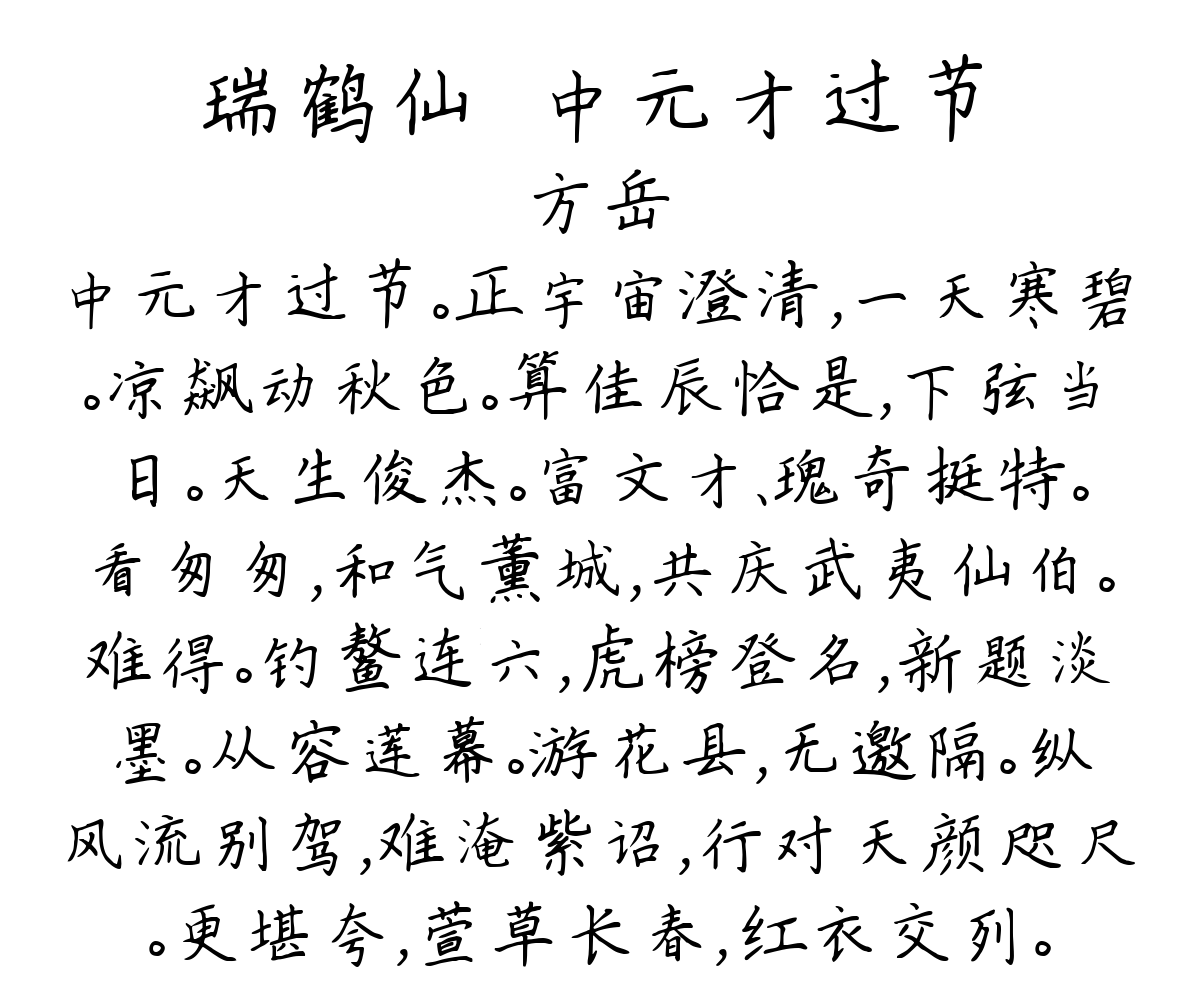 瑞鹤仙 中元才过节
方岳
中元才过节。正宇宙澄清,一天寒碧
。凉飙动秋色。算佳辰恰是,下弦当
日。天生俊杰。富文才、瑰奇挺特。
看匆匆,和气薰城,共庆武夷仙伯。
难得。钓鳌连六,虎榜登名,新题淡
墨。从容莲幕。游花县,无邀隔。纵
风流别驾,难淹紫诏,行对天颜咫尺
。更堪夸,萱草长春,红衣交列。